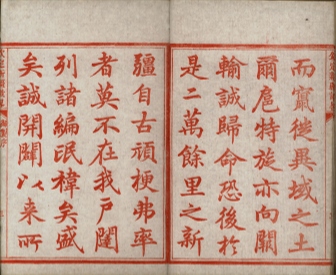 而竄徙異域之土
爾扈特旋亦向關
輸誠歸命恐後於
是二萬餘里之新
疆自古頑梗弗率
者莫不在我戶闥
列諸編氓禕矣盛
矣誠開闢以来所